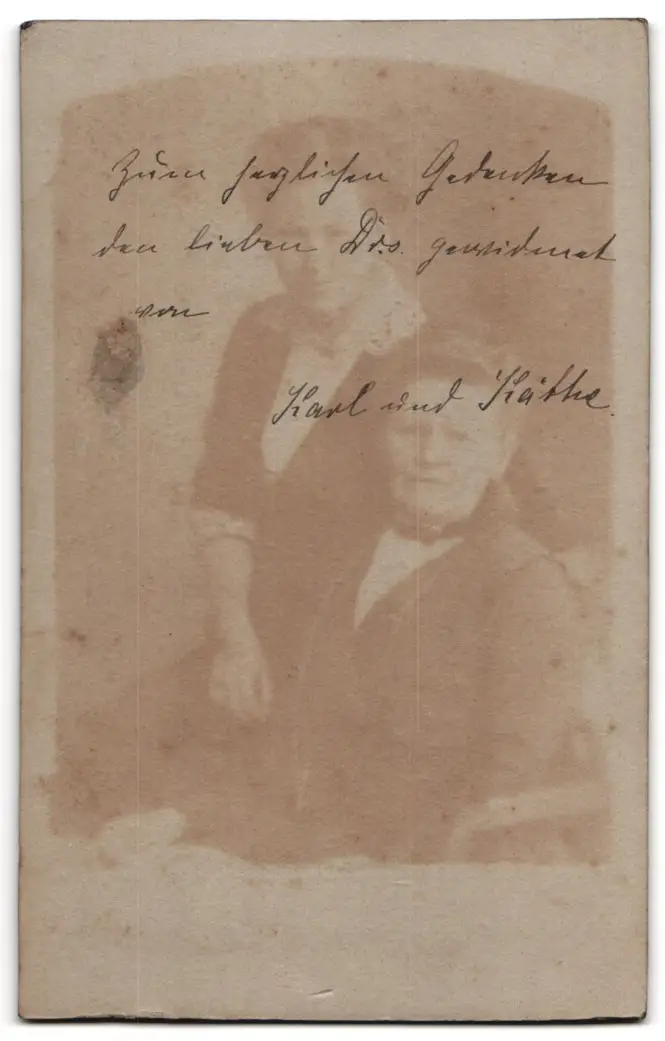 Zum herzlichen Gedenken
den lieben Drs. gewidmet
von
Karl und Käthe.